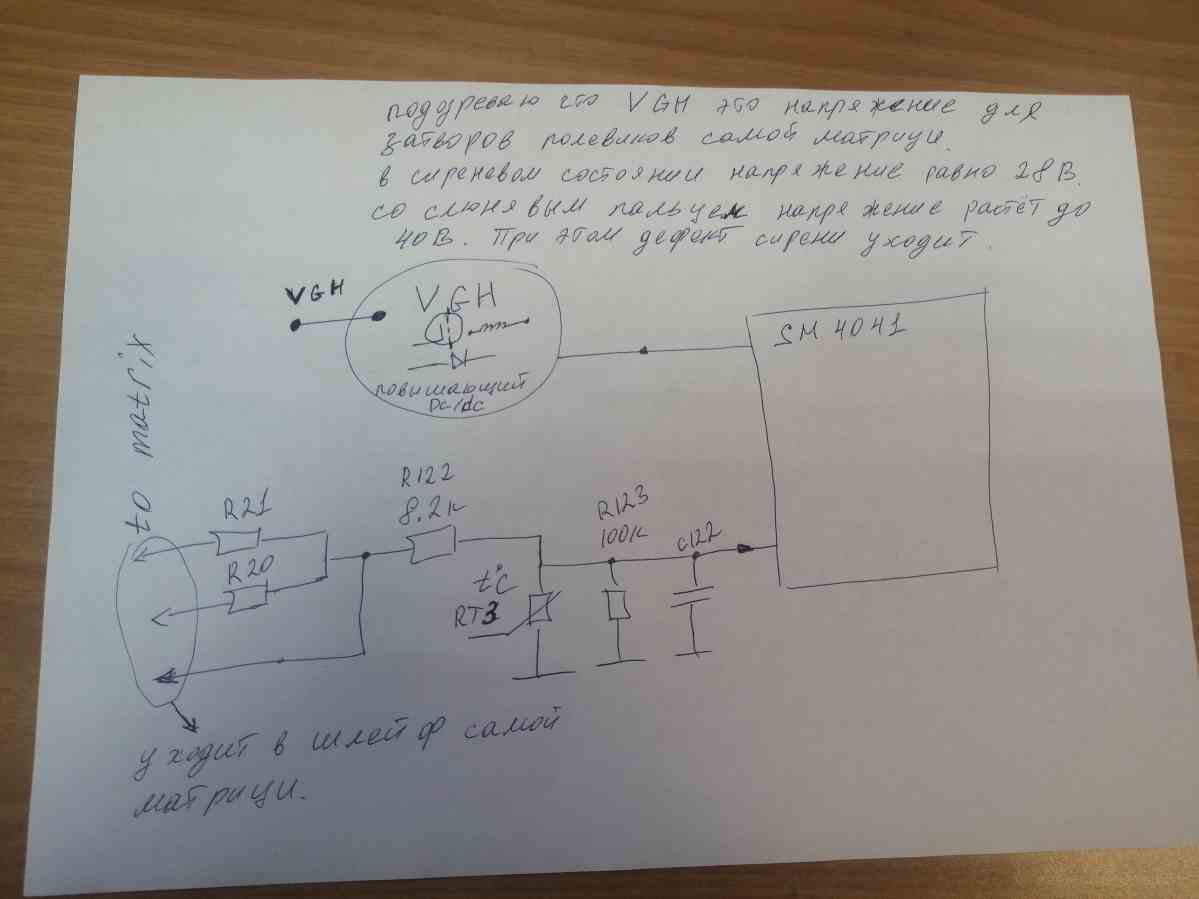 подозреваю что VGH это напряжение для
затворов полевиков самой матрици.
в сиреневом состоянии напряжение равно 28В.
со слюнявым пальцем напряжение растёт до
40В. При этом дефект сирени уходит.
VGH
VGH
повышающий
DC/dc
SM4041
to matrix
R21
R20
R122
8.2к
t°C
RT3
R123
100к
c122
уходит в шлейф самой
матрици.